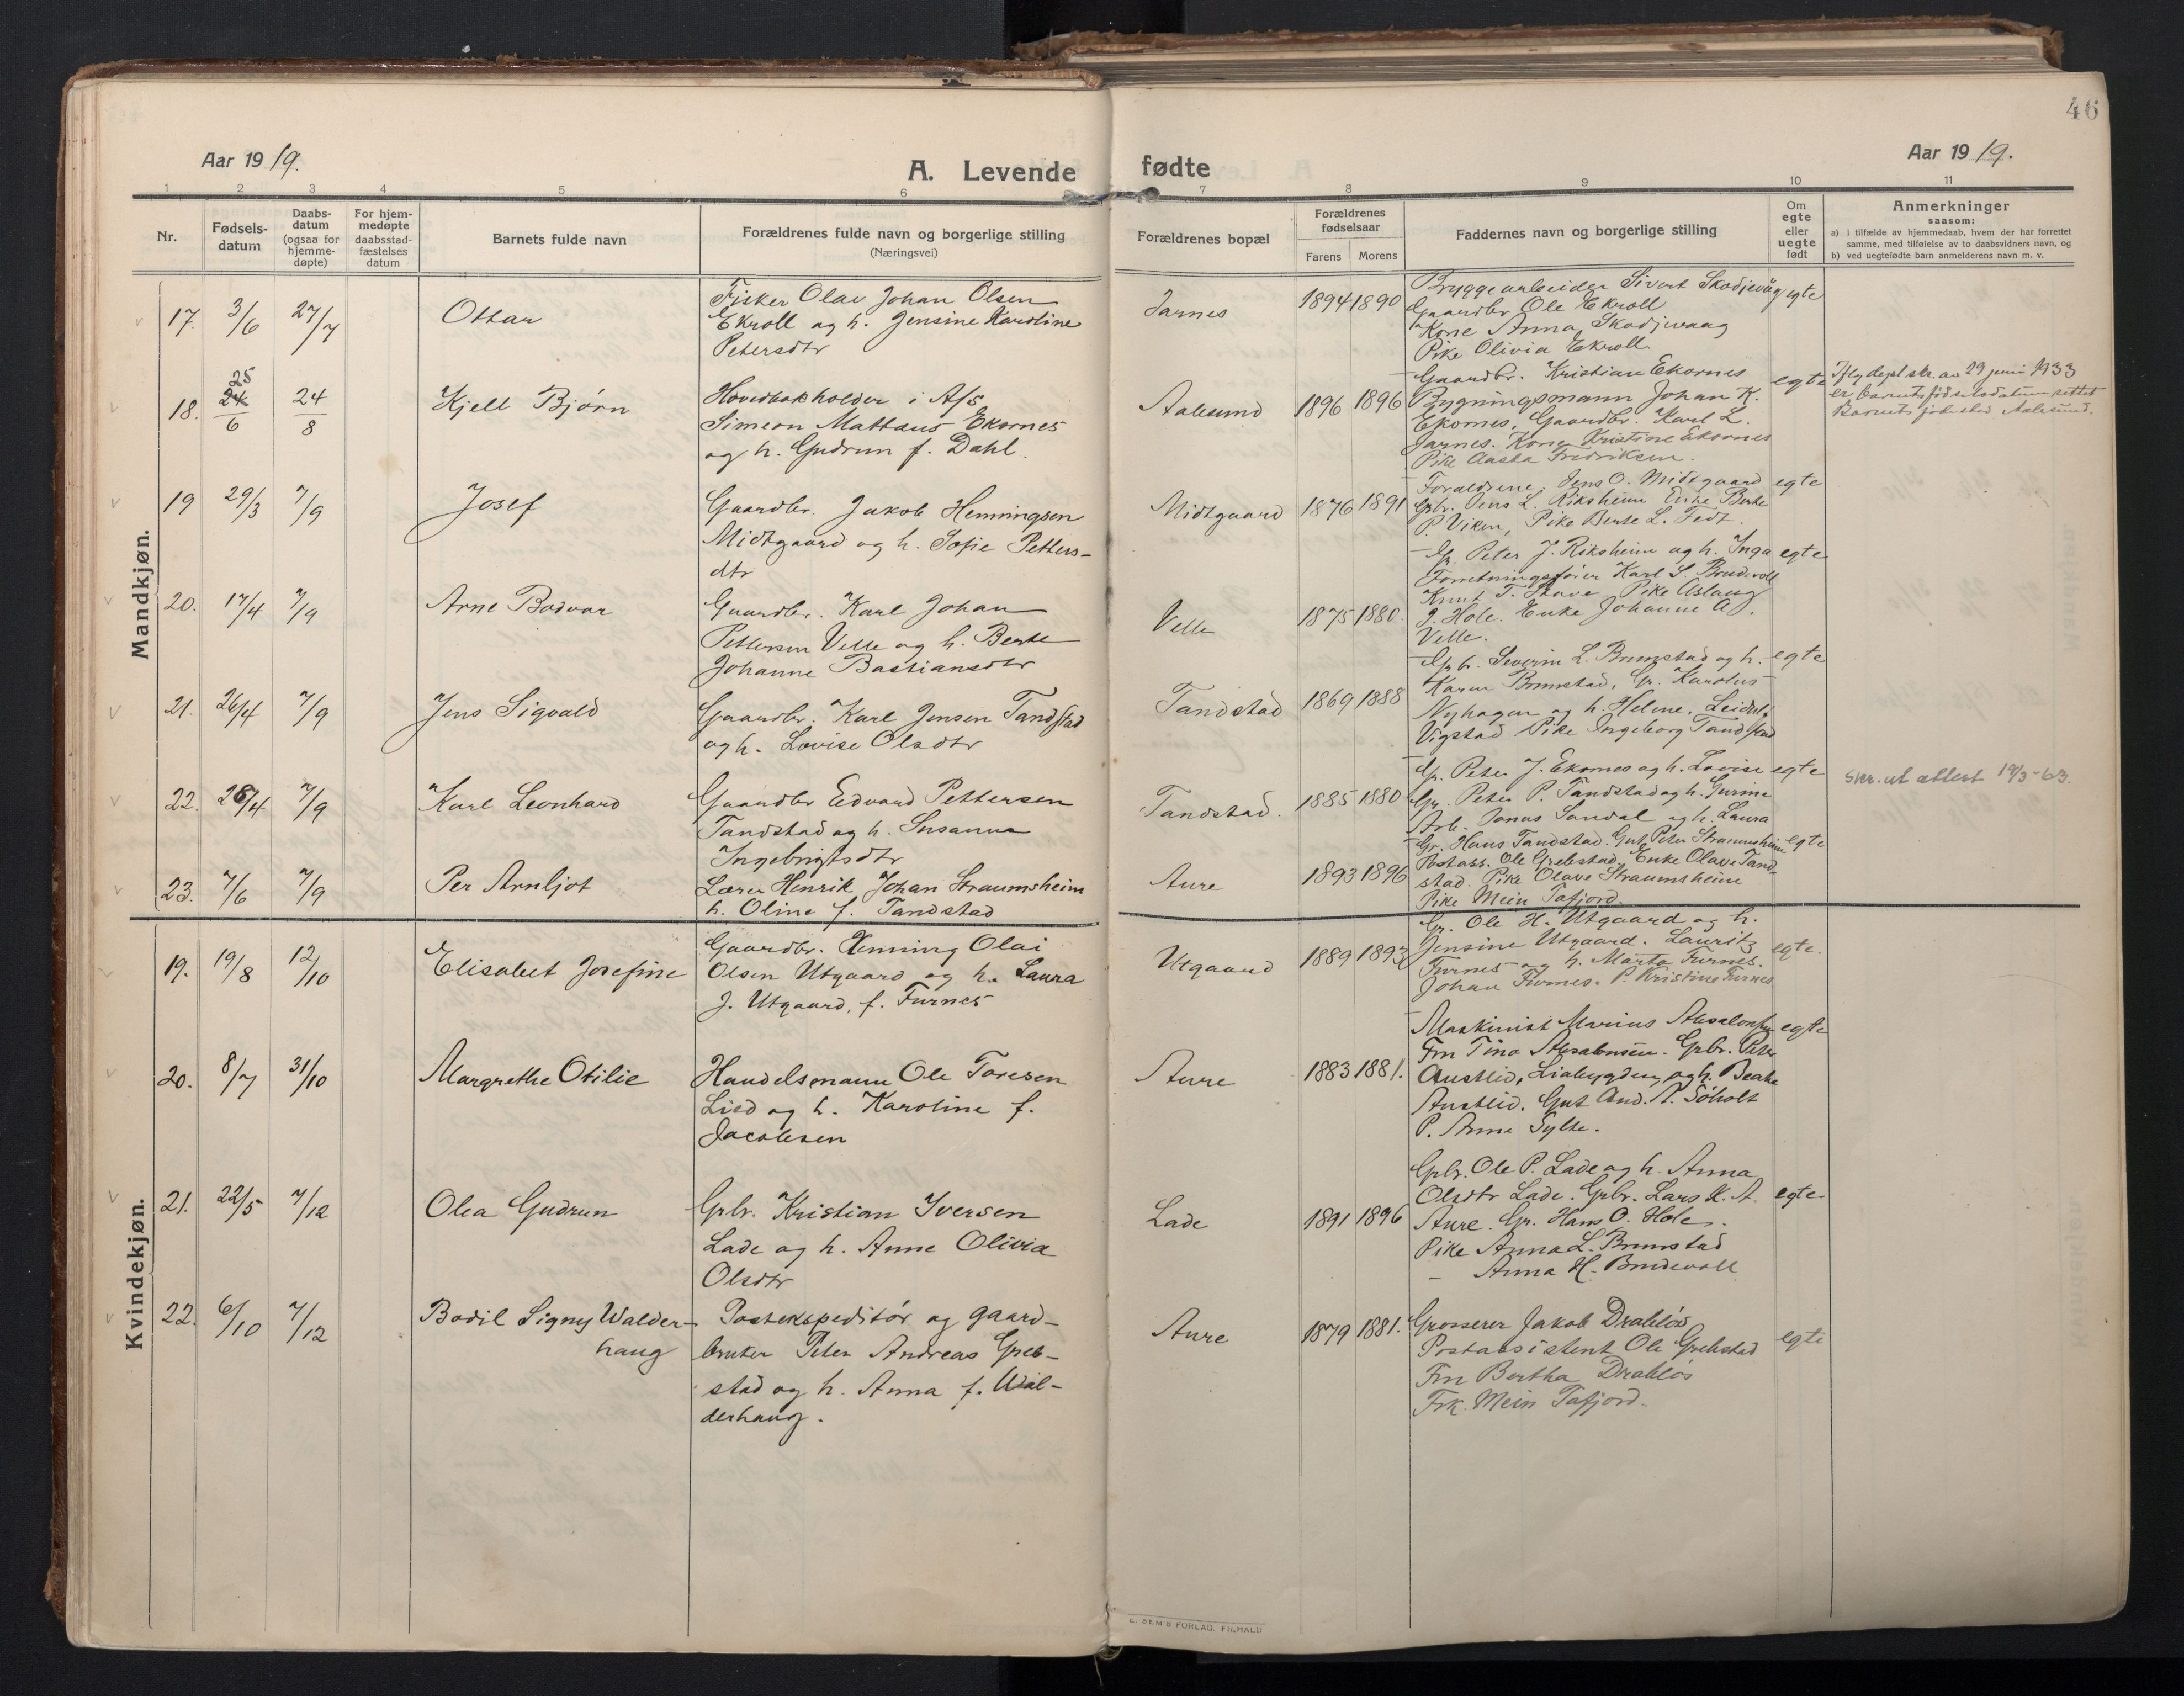 46
Aar 1919.
A. Levende fødte
Aar 1919.
1 2 3 4 5 6 7 8 9 10 11
Nr.
Fødsels-
datum
Daabs-
datum
(ogsaa for
hjemme-
døpte)
For hjem-
medøpte
daabsstad-
fæstelses
datum
Barnets fulde navn
Forældrenes fulde navn og borgerlige stilling
(Næringsvei)
Forældrenes bopæl
Forældrenes
fødselsaar
Farens Morens
Faddernes navn og borgerlige stilling
Om
egte
eller
uegte
født
Anmerkninger
saasom:
a) i tilfælde av hjemmedaab, hvem der har forrettet
samme, med tilføielse av to daabsvidners navn, og
b) ved uegtefødte barn anmelderens navn m. v.
Mandkjøn.
17. 3/6 27/7 Ottar
Fisker Olav Johan Olsen
Ekroll og h. Jensine Karoline
Petersdtr
Jarnes 1894 1890
Bryggearbeider Sivert Skodjevåg egte
Gaardbr Ole Ekroll
Kone Anna Skodjevaag
Pike Olivia Ekroll.
18. 25 24/6 24/8 Kjell Bjørn
Hovedbokholder i A/S
Simeon Mattæus Ekornes
og h. Gudrun f. Dahl.
Aalesund 1896 1896
Gaardbr. Kristian Ekornes egte
Bygningsmann Johan K.
Ekornes, Gaardbr. Karl L.
Jarnes. Kone Kristine Ekornes
Pike Aasta Fredriksen.
Iflg depl skr. av 29 juni 1933
er barnets fødselsdatum rettet
Barnets fødested Aalesund.
19 29/3 7/9 Josef
Gaardbr. Jakob Henningsen
Midtgaard og h. Sofie Petters-
dtr
Midtgaard 1876 1891
Forældrene, Jens O. Midtgaard egte
Gbr. Jens L. Riksheim Enke Berte
P. Viken, Pike Berte L. Fedt.
20. 17/4 7/9 Arne Bodvar
Gaardbr. Karl Johan
Pettersen Velle og h. Berte
Johanne Bastiansdtr
Velle 1875 1880.
Gr. Peter J. Riksheim og h. Inga egte
Forretningsfører Karl S. Brudevoll
Knut T. Hove, Pike Aslaug
J. Hole. Enke Johanne A.
Velle.
21. 26/4 7/9 Jens Sigvald
Gaardbr. Karl Jensen Tandstad
og h. Lovise Olsdtr
Tandstad 1869 1888
Gbr. Severin L. Brunstad og h. egte
Karen Brunstad, Gr. Karolus
Nyhagen og h. Helene.
Vigstad. Pike Ingeborg Tandstad
22. 7/9 Karl Leonhard
Gaardbr Edvard Pettersen
Tandstad og h. Susanna
Ingebrigtsdtr
Tandstad. 1885 1880
Gr. Peter J. Ekornes og h. Lovise egte
Gr. Peter P. Tandstad og h. Gurine
Arb. Jonas Sandal og h. Laura
skr. ut attest 19/3-63.
23. 7/6 7/9 Per Arnljot
Lærer Henrik Johan Straumsheim
h. Oline f. Tandstad
Aure 1893 1896
Gr. Hans Tandstad. Gut Peter Straumsheim egte
Postass. Ole Grebstad, Enke Olave Tand-
stad. Pike Olave Straumsheim
Pike Mein Tafjord.
Kvindekjøn.
19. 19/8 12/10 Elisabet Josefine
Gaardbr. Henning Olai
Olsen Utgaard og h. Laura
J. Utgaard, f. Furnes
Utgaard 1889 1893
Gr. Ole H. Utgaard og h.
Jensine Utgaard. Lauritz egte.
Furnes og h. Marta Furnes.
Johan Furnes. P. Kristine Furnes
20. 8/7 31/10 Margrethe Otilie
Handelsmann Ole Toresen
Lied og h. Karoline f.
Jacobsen
Aure 1883 1881.
Maskinist Marius Absalonsen egte
Fru Tina Absalonsen. Grbr. Peter
Austlid, Liabygden, og h. Beate
Austlid. Gut And. A. Søholt
P. Anne Sylte.
21. 22/5 7/12 Olea Gudrun
Grbr. Kristian Iversen
Lade og h. Anne Olivia
Olsdtr
Lade 1891 1896
Grbr. Ole P. Lade og h. Anna
Olsdtr Lade. Grbr. Lars K. A. egte
Aure. Gr. Hans O. Hole.
Pike Anna L. Brunstad
— Anna H. Brudevoll
22. 6/10 7/12 Bodil Signy Walder-
haug
Postekspeditør og gaard-
bruker Peter Andreas Greb-
stad og h. Anna f. Wal-
derhaug.
Aure 1879 1881.
Grosserer Jakob Drabløs
Postassistent Ole Grebstad egte
Fru Bertha Drabløs
Frk. Mein Tafjord.
E. SEM'S FORLAG, F.HALD